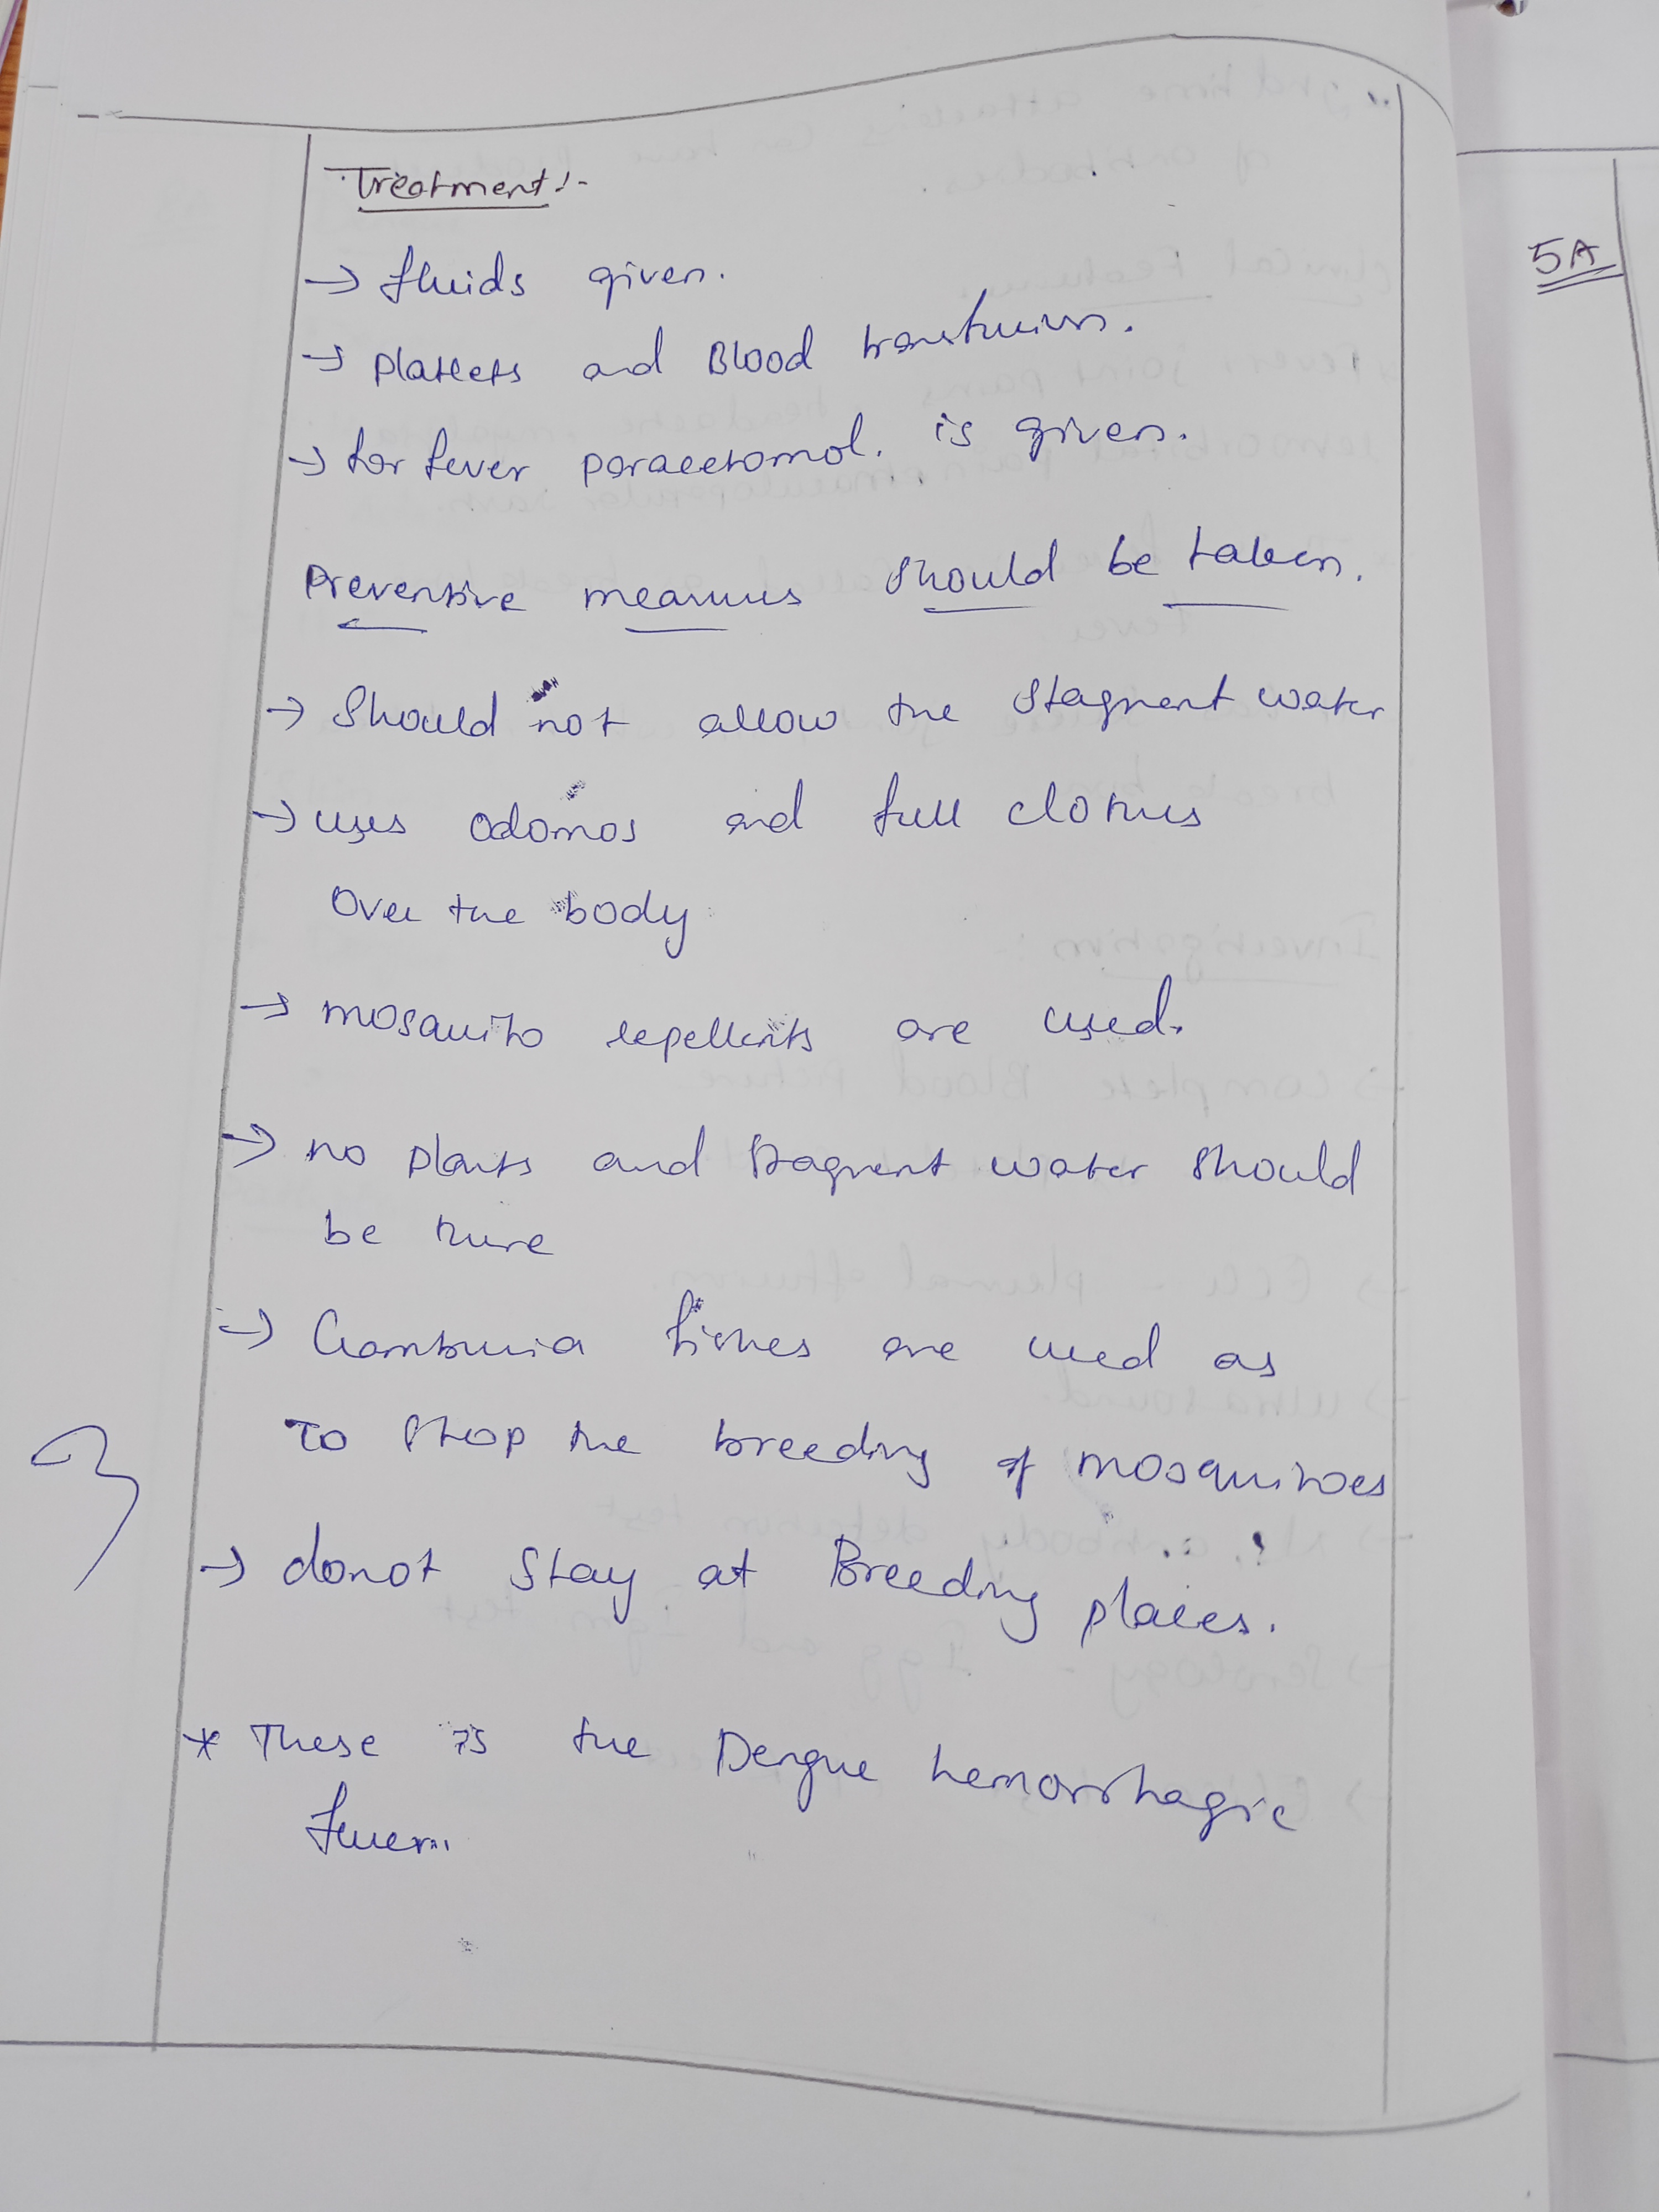 Treatment:-
→ fluids given.
→ Platlets and Blood transfusion.
→ for fever paracetamol. is given.
Preventive measures should be taken.
→ Should not allow the stagnent water
→ uses odomos and full clothes
over the body
→ mosquito repellents are used.
→ no plants and stagnent water should
be there
→ Gambusia fishes are used as
To stop the breeding of mosquitoes
→ donot stay at Breeding places.
* These is the Dengue hemorrhagic
fever.
3
5A